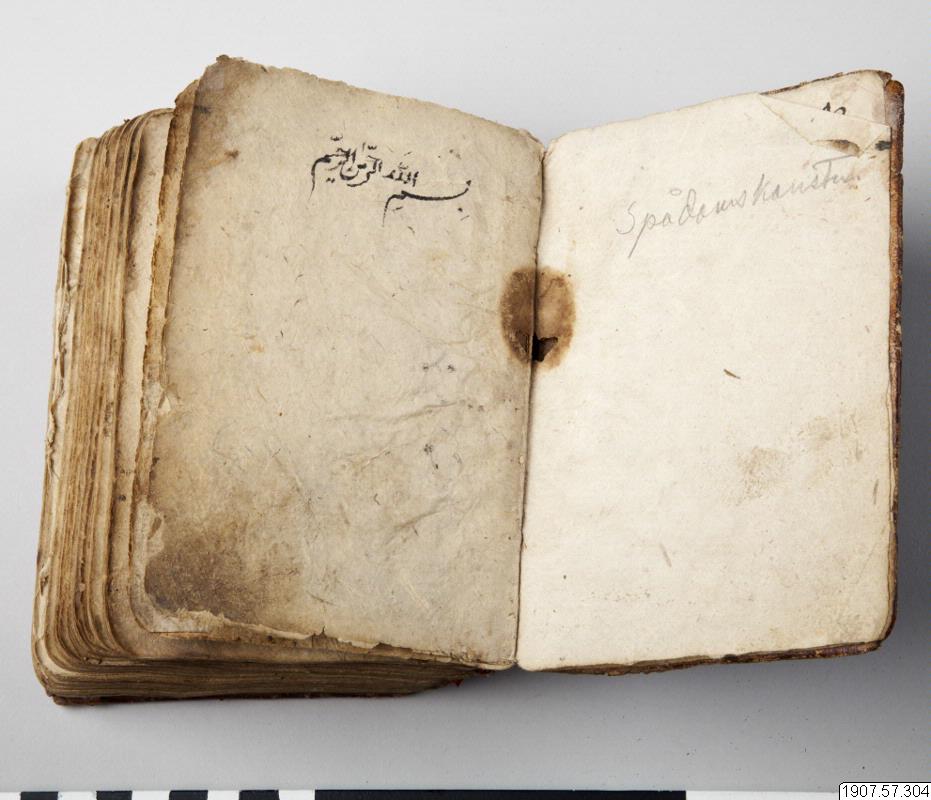 بسم الله الرحمن الرحيم
Spådomskonsten.
1907.57.304